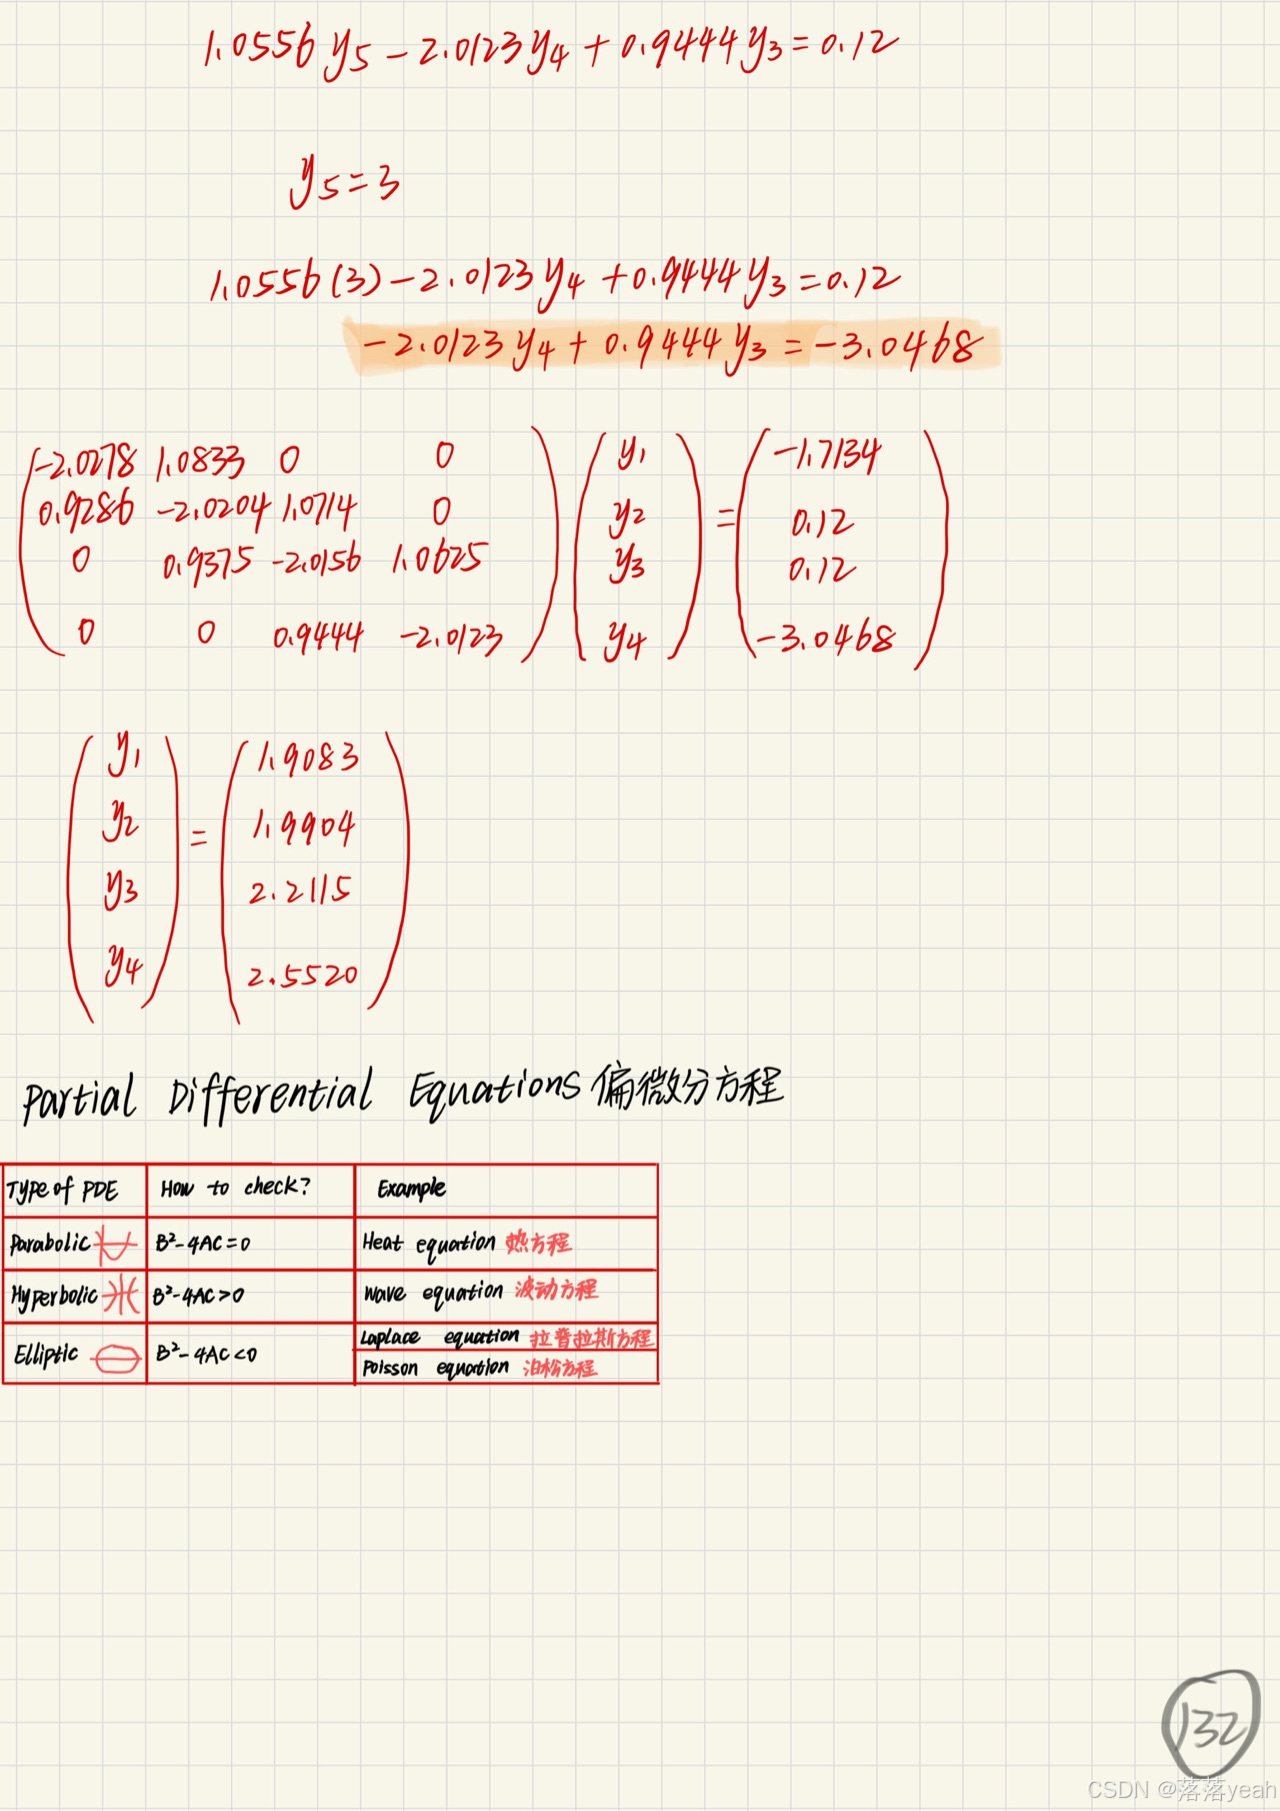 1.0556y₅ - 2.0123y₄ + 0.9444y₃ = 0.12
y₅ = 3
1.0556(3) - 2.0123y₄ + 0.9444y₃ = 0.12
-2.0123y₄ + 0.9444y₃ = -3.0468
-2.0278 1.0833 0 0 y₁ -1.7134
0.9286 -2.0204 1.0714 0 y₂ = 0.12
0 0.9375 -2.0156 1.0625 y₃ 0.12
0 0 0.9444 -2.0123 y₄ -3.0468
y₁ 1.9083
y₂ = 1.9904
y₃ 2.2115
y₄ 2.5520
Partial Differential Equations 偏微分方程
Type of PDE How to check? Example
Parabolic B²-4AC=0 Heat equation 热方程
Hyperbolic B²-4AC>0 Wave equation 波动方程
Elliptic B²-4AC<0 Laplace equation 拉普拉斯方程
Poisson equation 泊松方程
132
CSDN @落落yeah